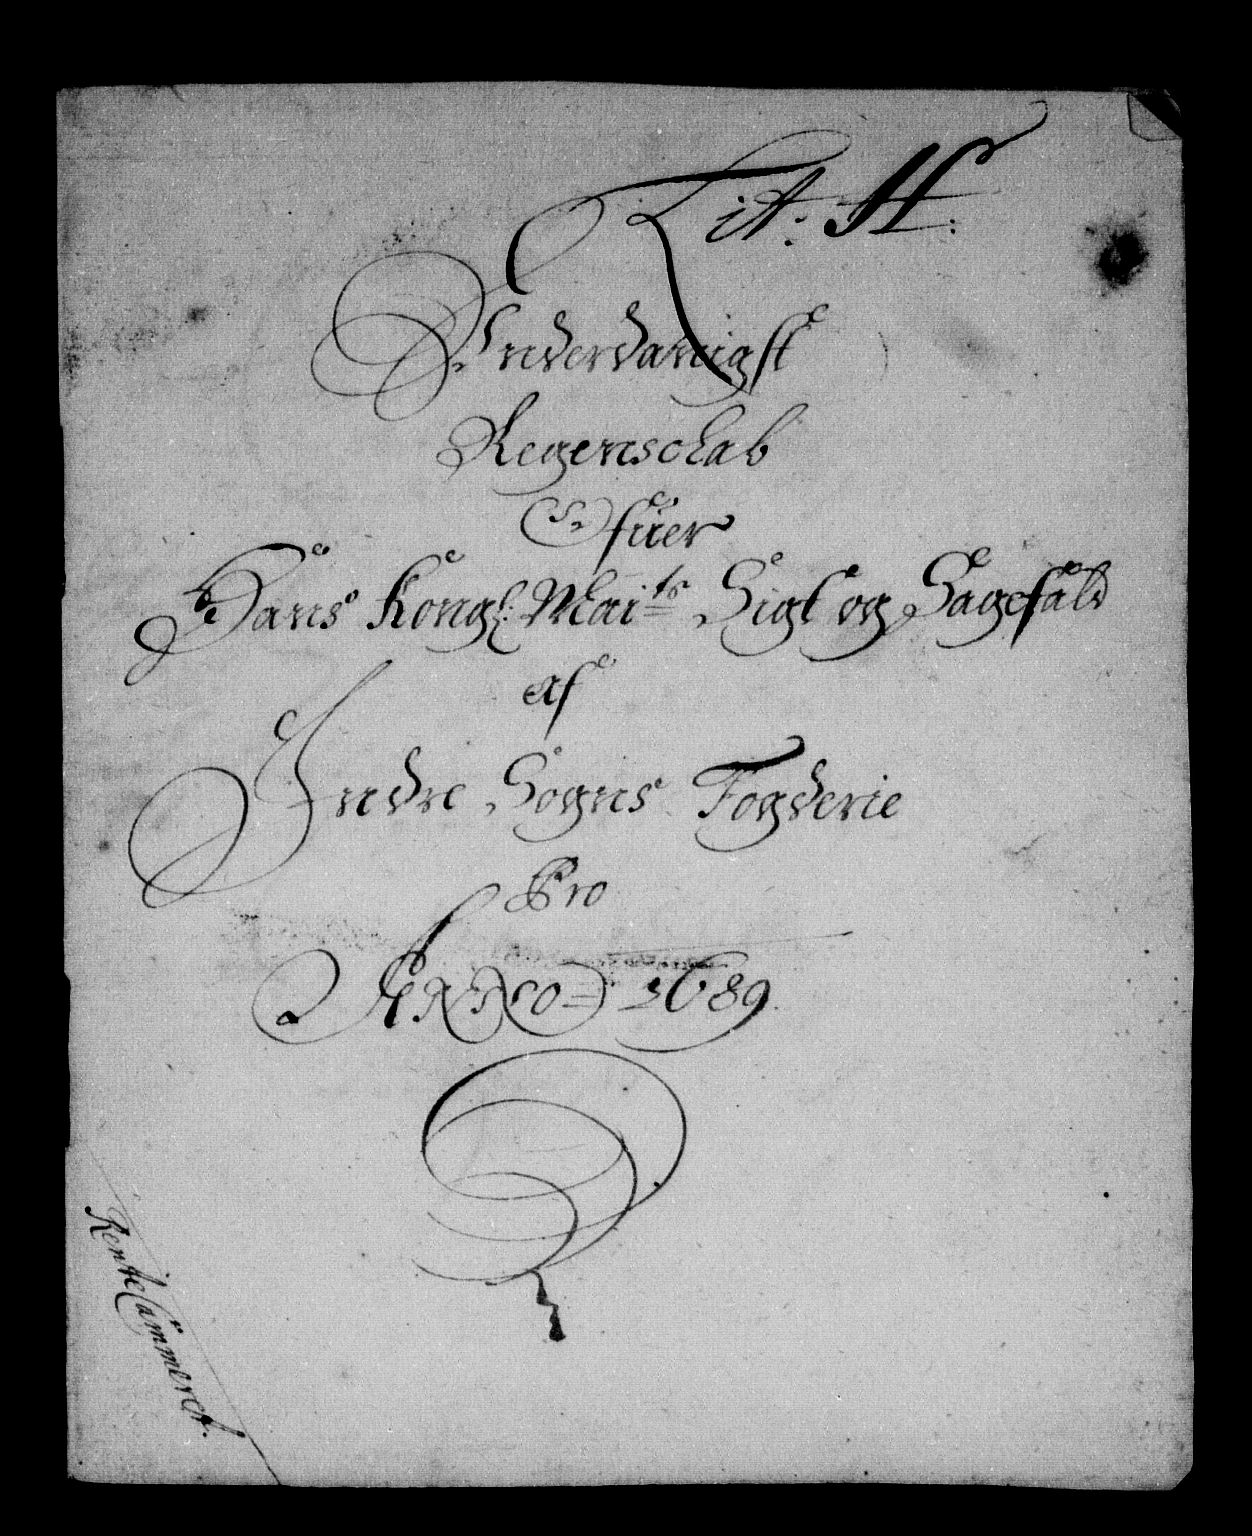 Lit: H:
Underdanigst
Regenschab
Ofuer
Hans Kongl: Mai:ts Sigt og Sagefald
af
Indre Sogns Fogderie
Pro
Anno 1689.
Rente Cammeret.